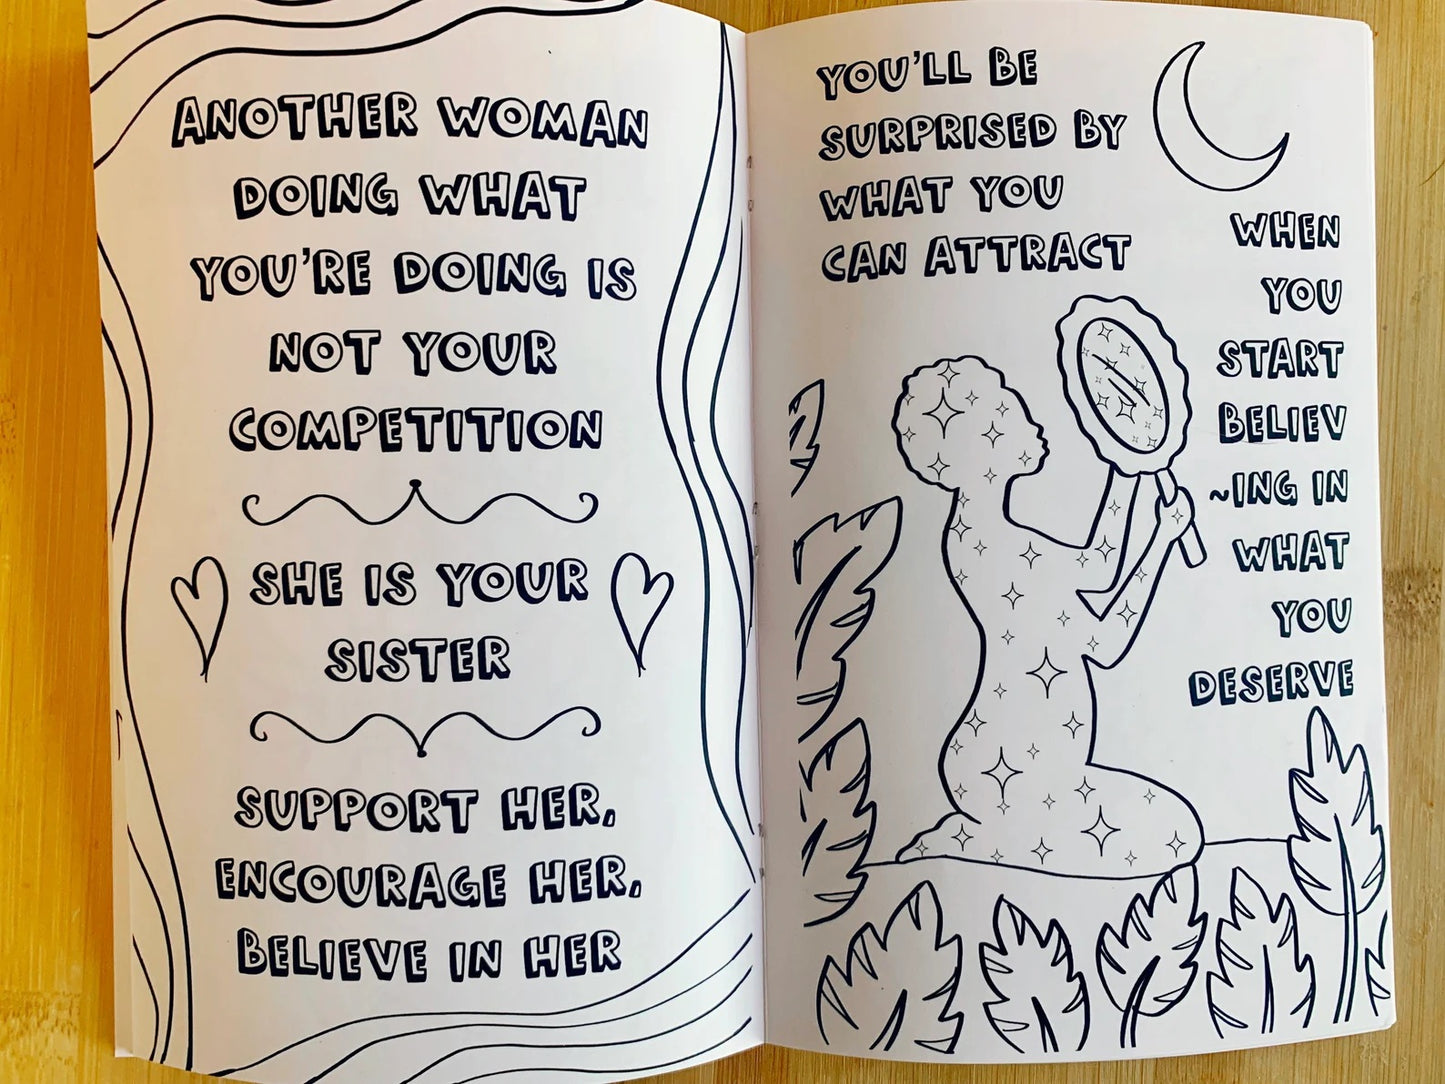 ANOTHER WOMAN
DOING WHAT
YOU'RE DOING IS
NOT YOUR
COMPETITION
SHE IS YOUR
SISTER
SUPPORT HER,
ENCOURAGE HER,
BELIEVE IN HER
YOU'LL BE
SURPRISED BY
WHAT YOU
CAN ATTRACT
WHEN
YOU
START
BELIEV
~ING IN
WHAT
YOU
DESERVE